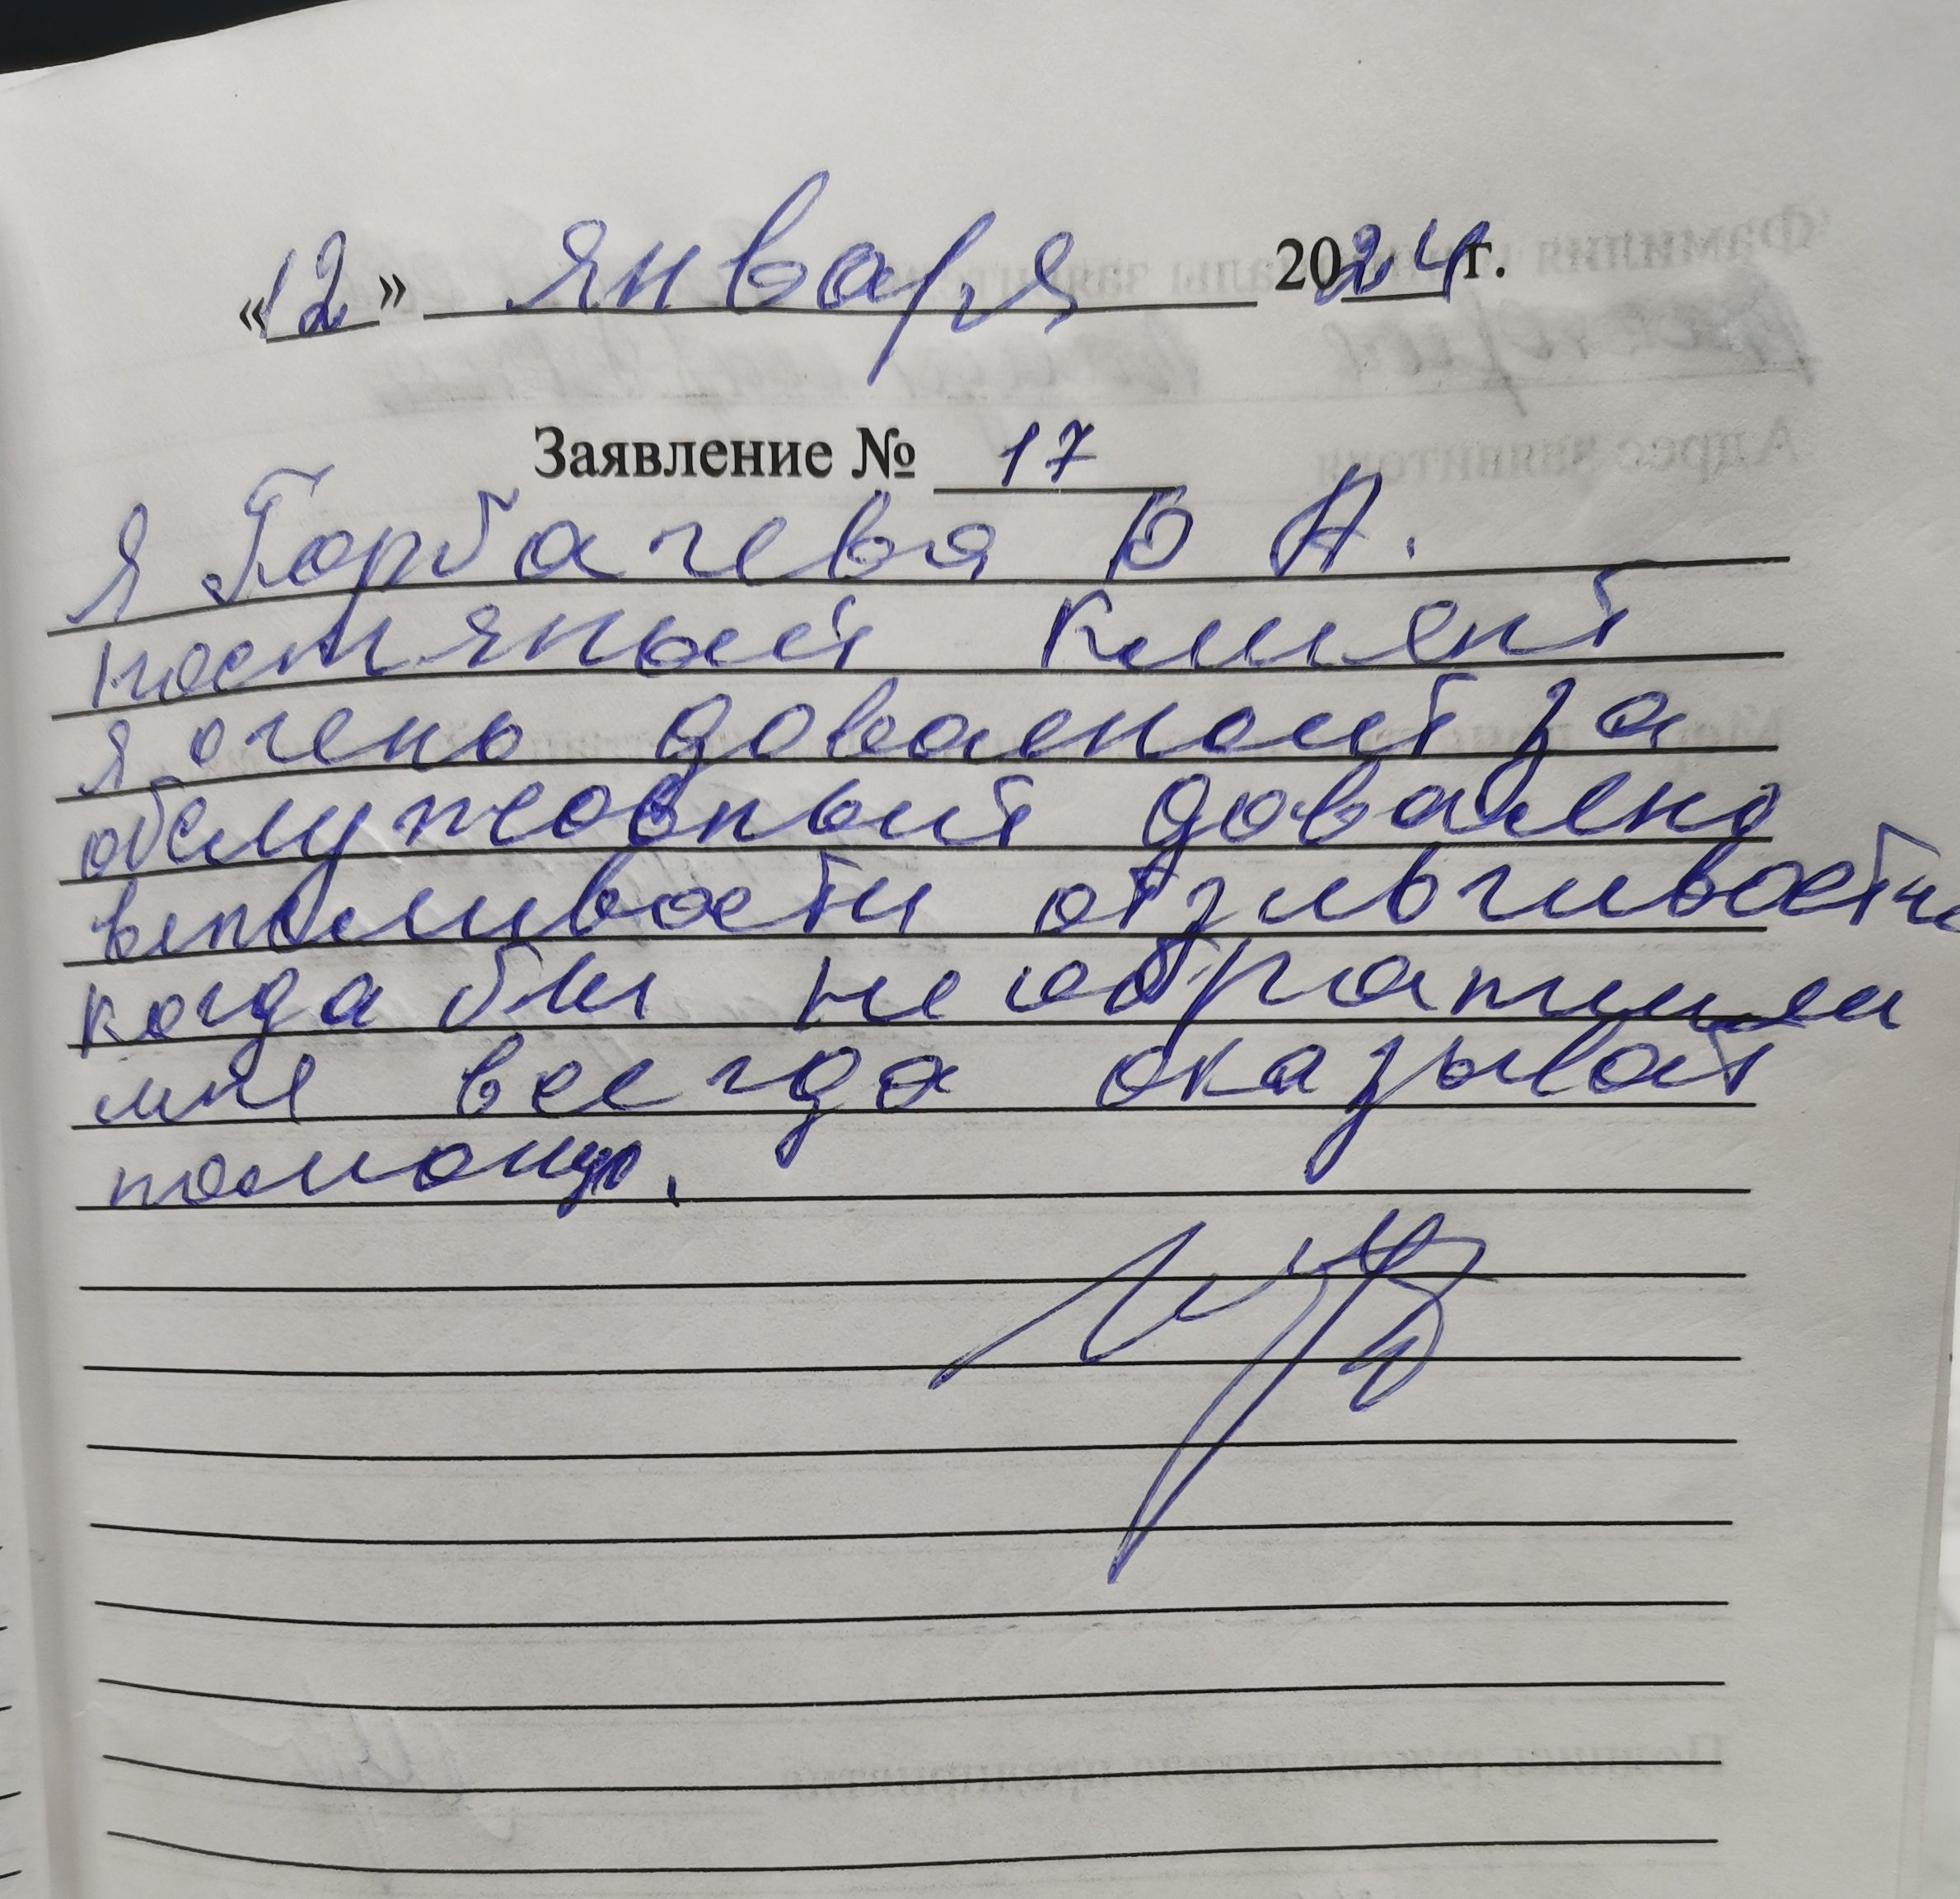 «12» января 2024 г.
Заявление № 17
Я Горбачева В А.
постяный клиент
я очень довольный за
обслуживный довольно
веполивости отзывчивости
когда бы не обратилси
мне всегда оказыват
помощь.